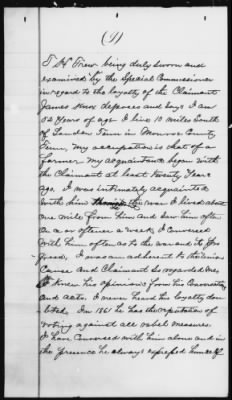 (1)
T. H. Trew being duly sworn and
examined by the Special Commissioner
in regard to the loyalty of the Claimant
James deposes and says I am
52 Years of age I live 10 miles South
of Loudon Tenn in Monroe County
Tenn, my occupation is that of a
Farmer. My acquaintance began with
the Claimant at least twenty Years
ago. I was intimately acquainted
with him the war I lived about
one mile from him and saw him often
as a or oftener a week, I Conversed
with him often as to the war and its
I was an adherent to the Union
Cause and Claimant so regarded me.
I knew his opinions from his Conversation
and acts. I never heard his loyalty dou-
bted. In 1861 he has the reputation of
voting against all rebel measures.
I have Conversed with him alone and in
the presence he always expressed himself